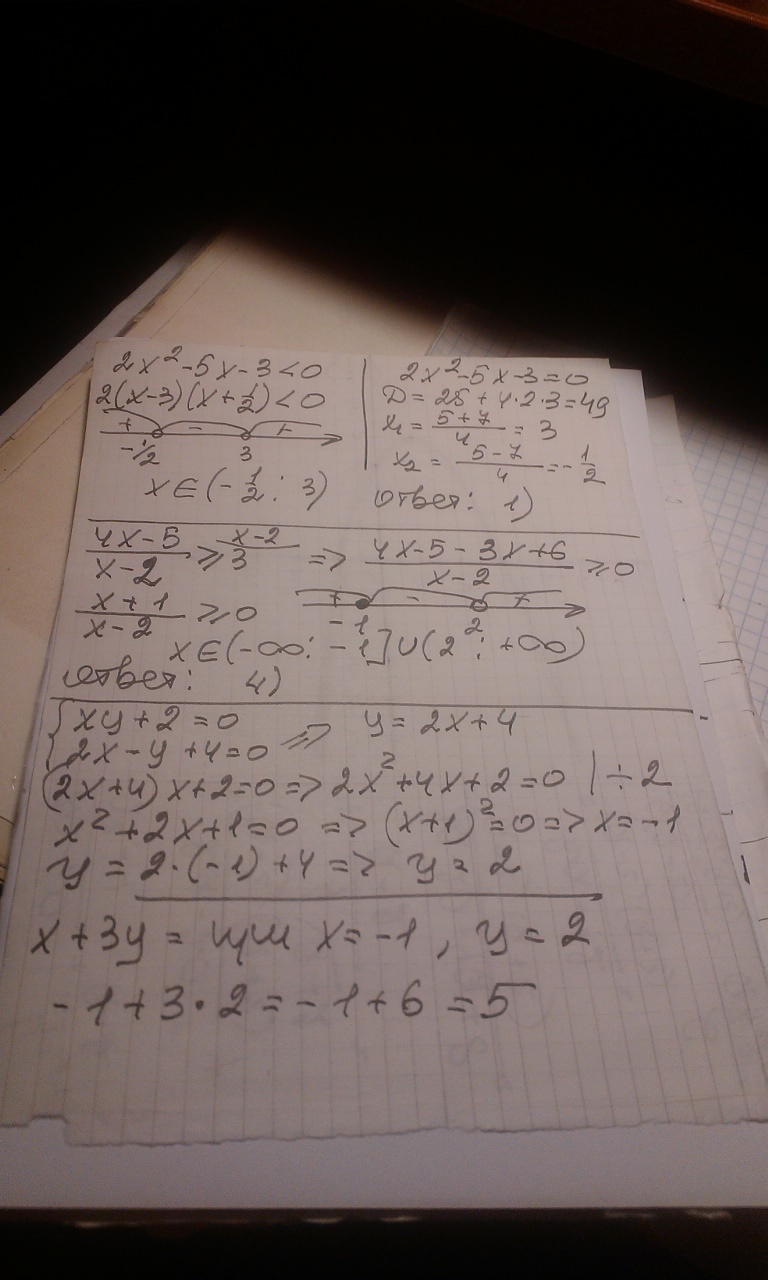 2x²-5x-3<0
2(x-3)(x+1/2)<0
+ - +
-1/2 3
x∈(-1/2; 3)
2x²-5x-3=0
D=25+4·2·3=49
x₁=(5+7)/4=3
x₂=(5-7)/4=-1/2
ответ: 1)
(4x-5)/(x-2)≥3 x-2 => (4x-5-3x+6)/(x-2)≥0
(x+1)/(x-2)≥0
+ - +
-1 2
x∈(-∞; -1]∪(2; +∞)
ответ: 4)
{xy+2=0
2x-y+4=0 => y=2x+4
(2x+4)x+2=0 => 2x²+4x+2=0 |÷2
x²+2x+1=0 => (x+1)²=0 => x=-1
y=2·(-1)+4 => y=2
x+3y= при x=-1, y=2
-1+3·2=-1+6=5